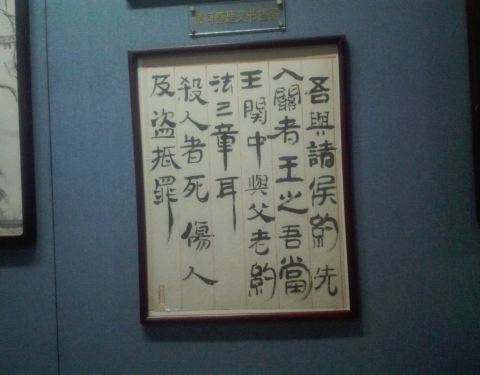 吾與諸侯約先
入關者王之吾當
王関中與父老約
法三章耳
殺人者死傷人
及盗抵罪